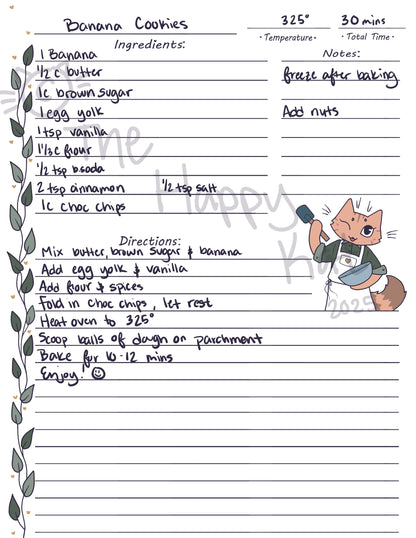 Banana Cookies
325°
30 mins
• Temperature •
• Total Time •
Ingredients:
Notes:
1 Banana
1/2 c butter
1c brown sugar
1 egg yolk
1 tsp vanilla
1 1/3 c flour
1/2 tsp b.soda
2 tsp cinnamon 1/2 tsp salt
1c choc chips
freeze after baking
Add nuts
Directions:
Mix butter, brown sugar & banana
Add egg yolk & vanilla
Add flour & spices
Fold in choc chips, let rest
Heat oven to 325°
Scoop balls of dough on parchment
Bake for 10-12 mins
Enjoy! ☺
The
Happy
2025